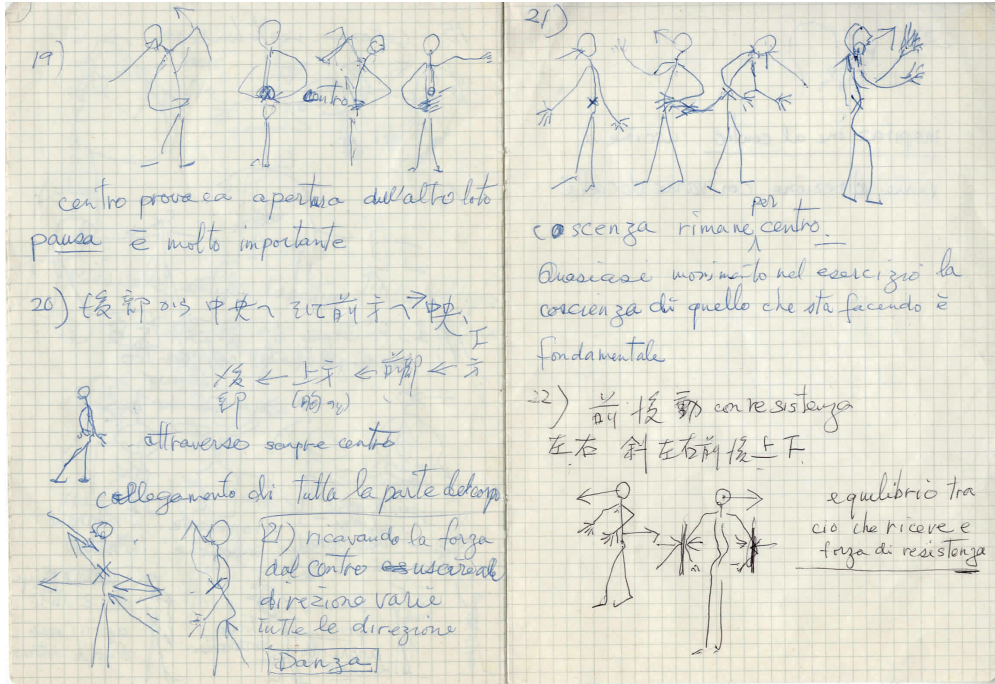 19)
centro
centro provoca apertura dell'altro loto
pausa è molto important​e
20) 後部から中央へ そして前方へ→中央、下
後部 ← 上方 ← 前部 ← 方
attraverso sempre centro
collegamento di tutta la parte del corpo
21) ricavando la forza
dal centro uscire al
direzione varie
tutte le direzione
Danza
21)
coscenza rimane per centro.
Quasiasi movimento nel esercizio la
coscienza di quello che sta facendo è
fondamentale
22) 前後動 con resistenza
左右 斜左右前後上下
equilibrio tra
ciò che riceve e
forza di resistenza